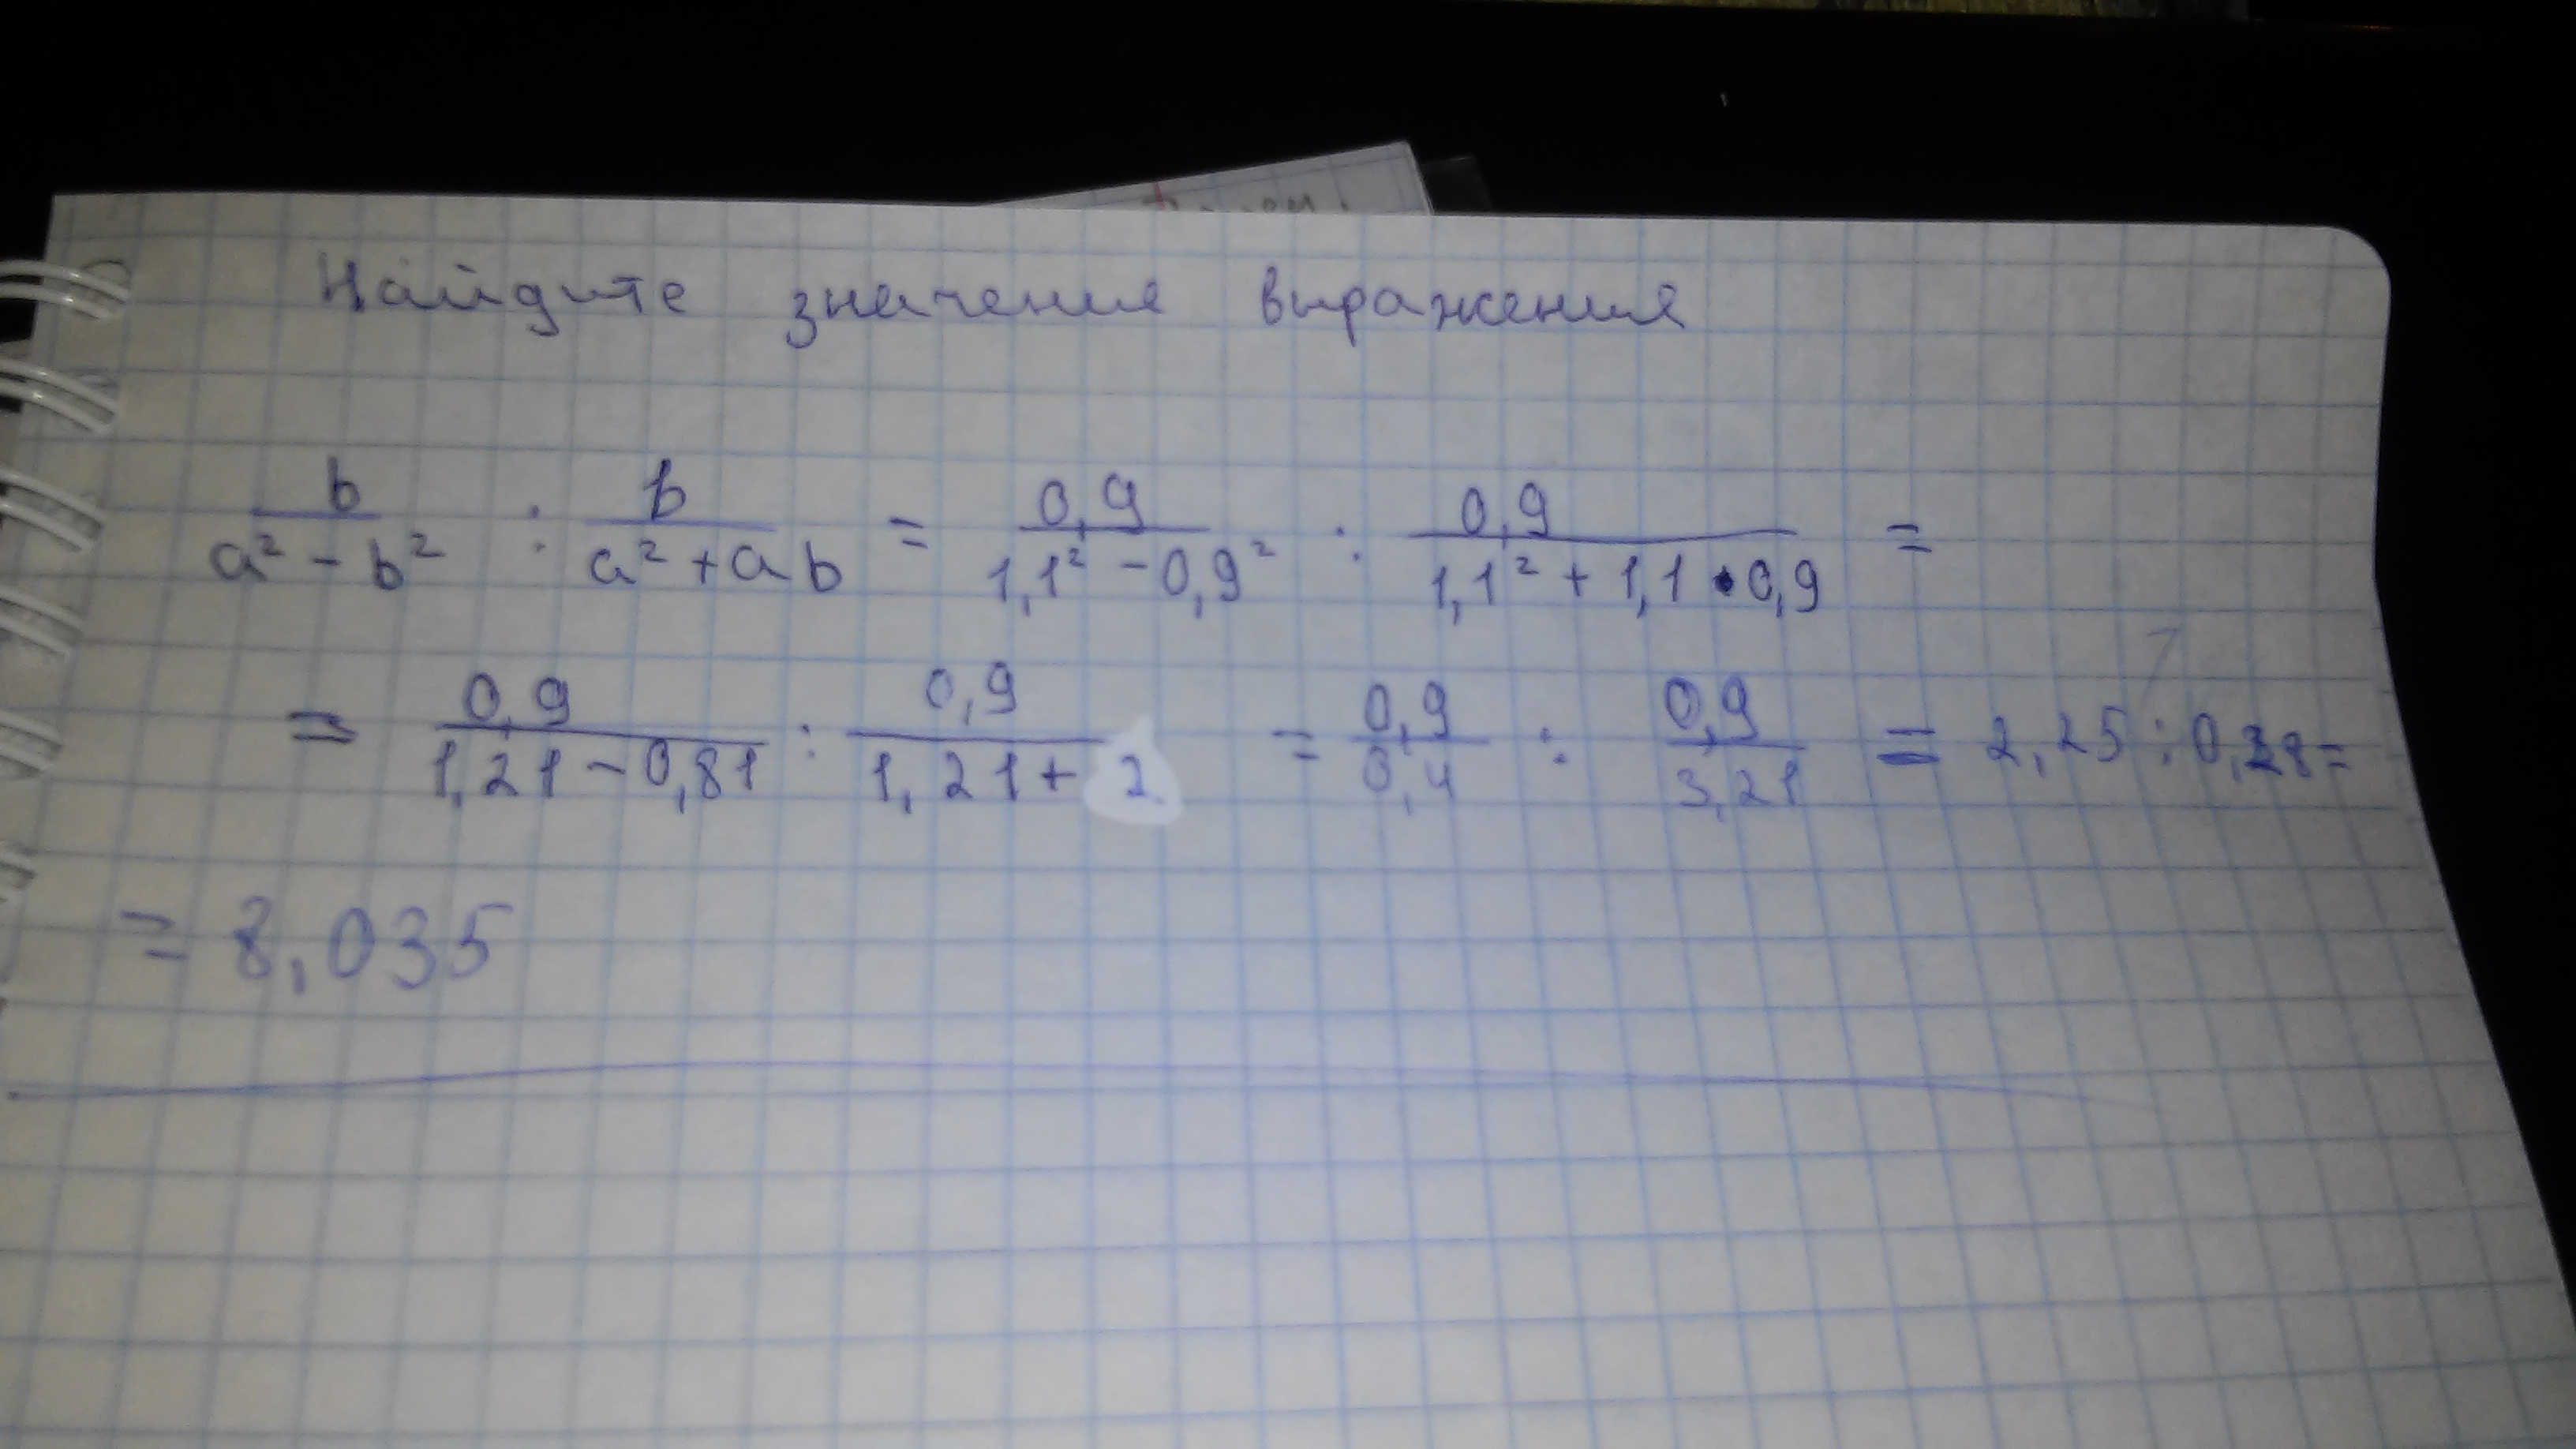 Найдите значения выражения
b/(a² - b²) : b/(a² + ab) = 0,9/(1,1² - 0,9²) : 0,9/(1,1² + 1,1 • 0,9) =
= 0,9/(1,21 - 0,81) : 0,9/(1,21 + 2) = 0,9/0,4 : 0,9/3,21 = 2,25 : 0,28 =
= 8,035